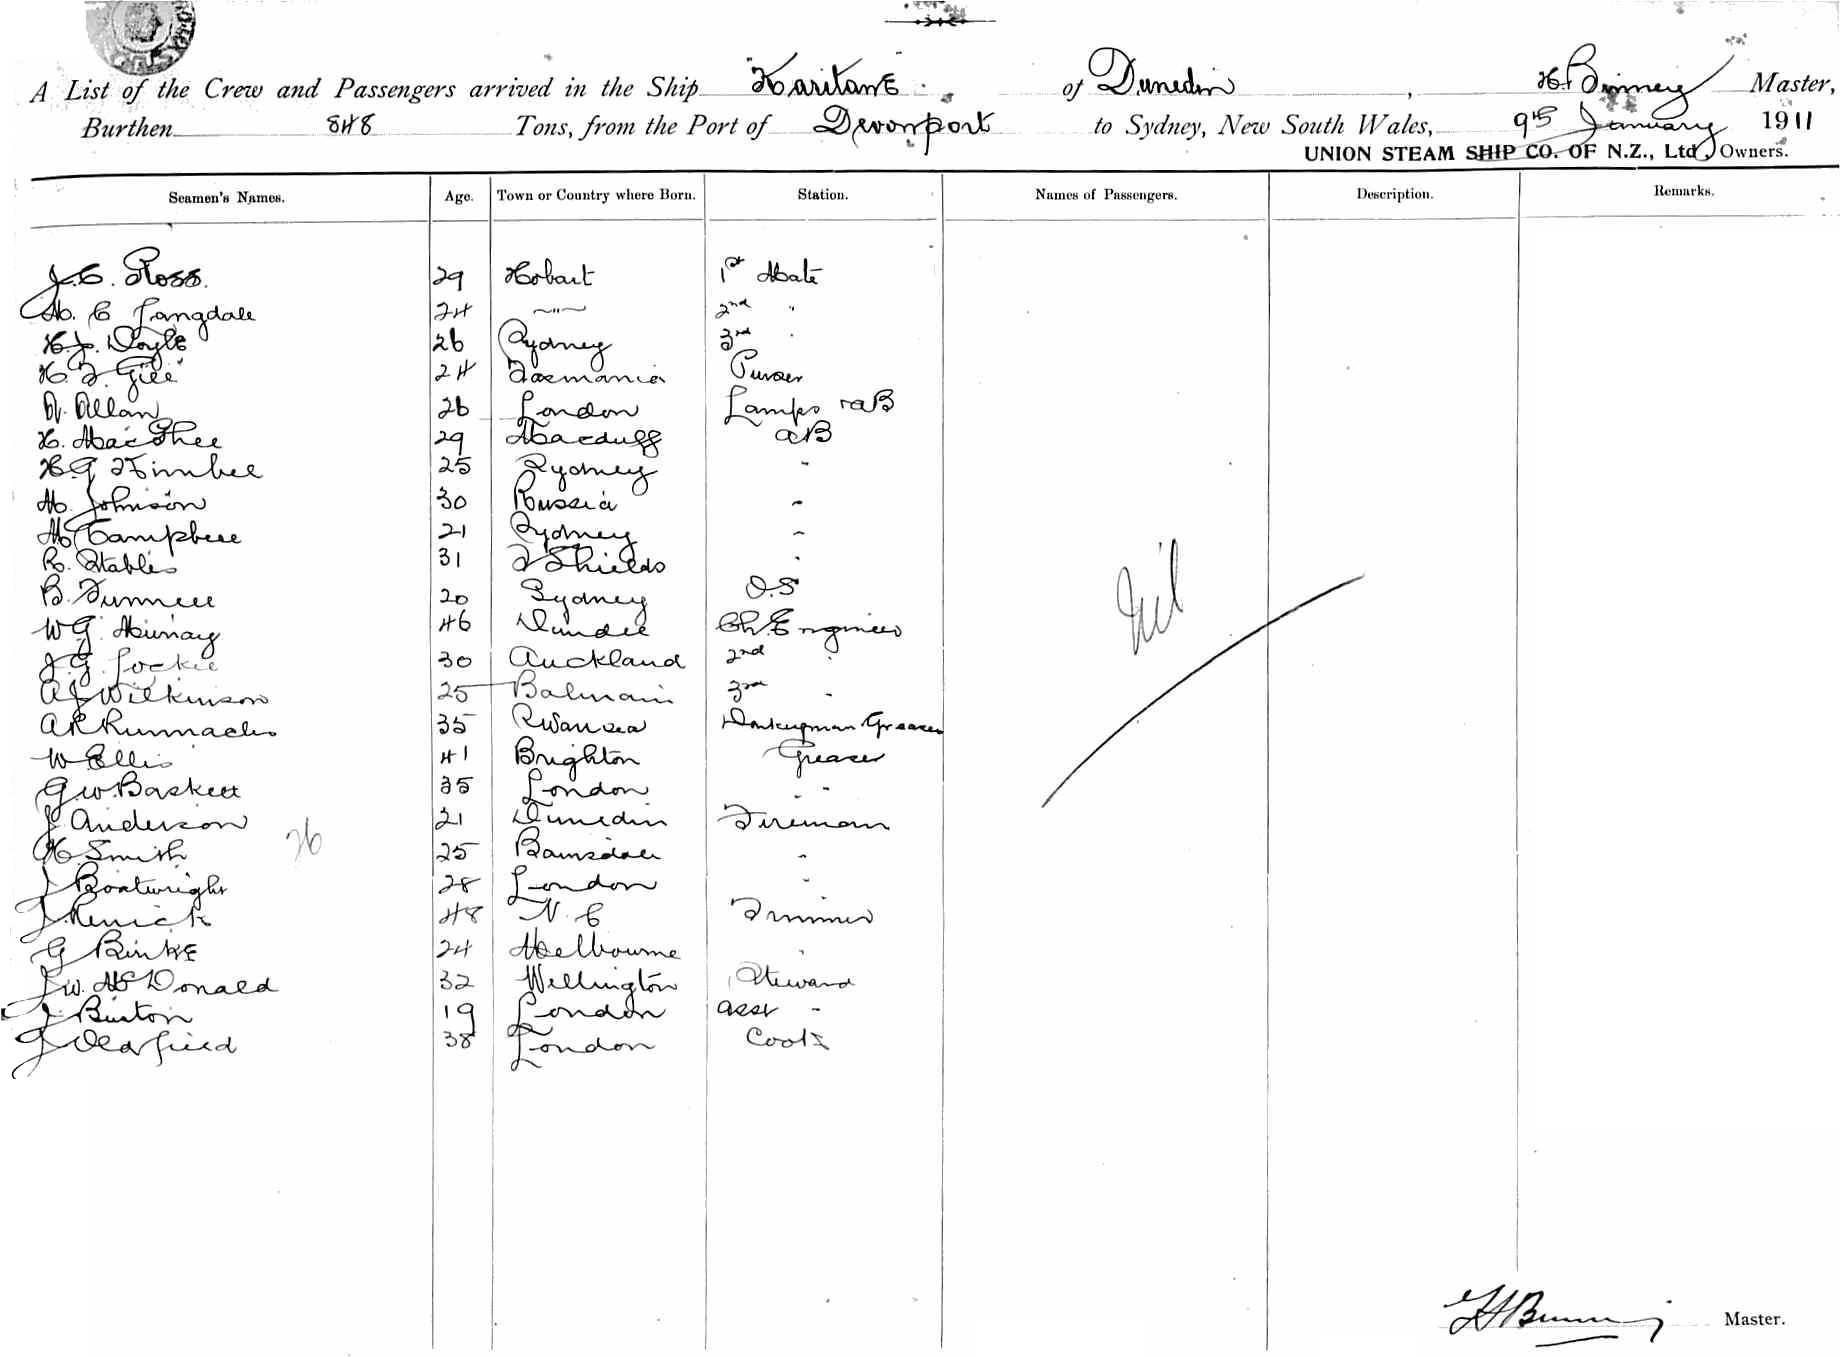 A List of the Crew and Passengers arrived in the Ship "Karitane" of Dunedin, Master,
Burthen 848 Tons, from the Port of Devonport to Sydney, New South Wales, 9th January 1911
UNION STEAM SHIP CO. OF N.Z., Ltd, Owners.
Seamen's Names. Age. Town or Country where Born. Station. Names of Passengers. Description. Remarks.
J. C. Ross. 29 Hobart 1st Mate
M. C Langdale 24 —"— 2nd "
H. J. Doyle 26 Sydney 3rd "
H. F. Gill 24 Tasmania Purser
A. Allan 26 London Lamps & AB
H. MacGhee 29 Macduff AB
H G Kimbel 25 Sydney "
M. Johnson 30 Russia "
M Campbell 21 Sydney "
R. Stables 31 S Shields "
B. Funnell 20 Sydney O.S
W G. Murray 46 Dundee Ch. Engineer
J. G. Lockie 30 Auckland 2nd "
A J Wilkinson 25 Balmain 3rd "
A R 35 Swansea Donkeyman Greaser
W Ellis 41 Brighton Greaser
G. W. Baskett 35 London " "
J Anderson 21 Dunedin Fireman
H Smith 25 Bairnsdale "
J Boatwright 28 London "
J Renick 48 N. C Trimmer
G Binks 24 Melbourne "
J W. McDonald 32 Wellington Steward
J Burton 19 London Asst "
J Oldfield 38 London Cook
26
Nil
Master.